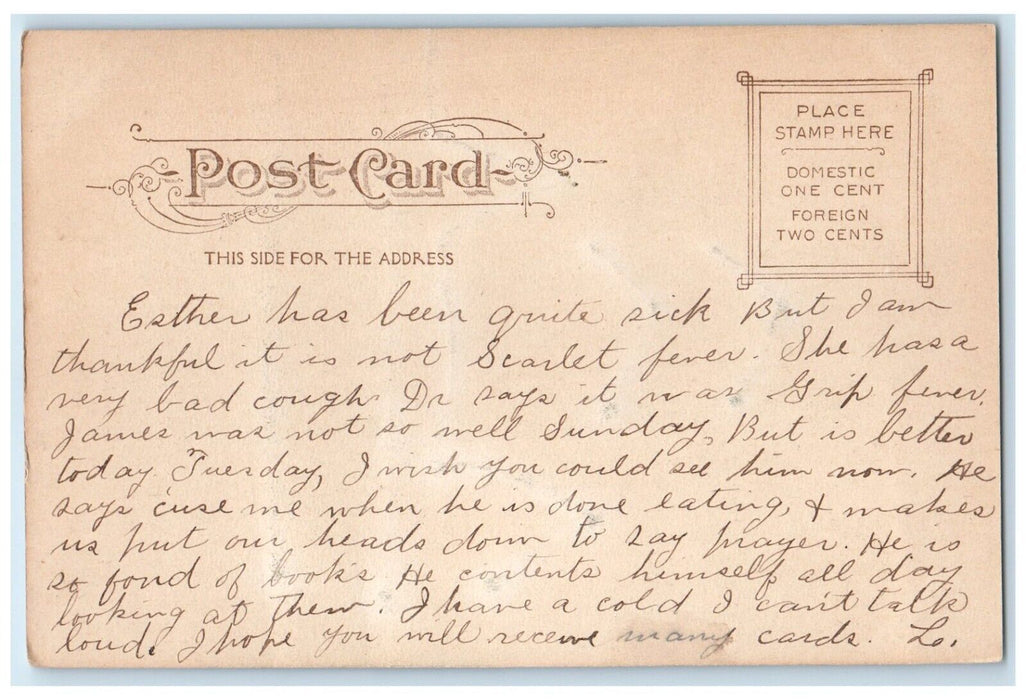 Post Card
THIS SIDE FOR THE ADDRESS
PLACE
STAMP HERE
DOMESTIC
ONE CENT
FOREIGN
TWO CENTS
Esther has been quite sick But I am
thankful it is not Scarlet fever. She has a
very bad cough Dr says it was Grip fever.
James was not so well Sunday, But is better
today Tuesday, I wish you could see him now. He
says 'cuse me when he is done eating, & makes
us put our heads down to say prayer. He is
so fond of books He contents himself all day
looking at them. I have a cold I can't talk
loud. I hope you will receive many cards. L.